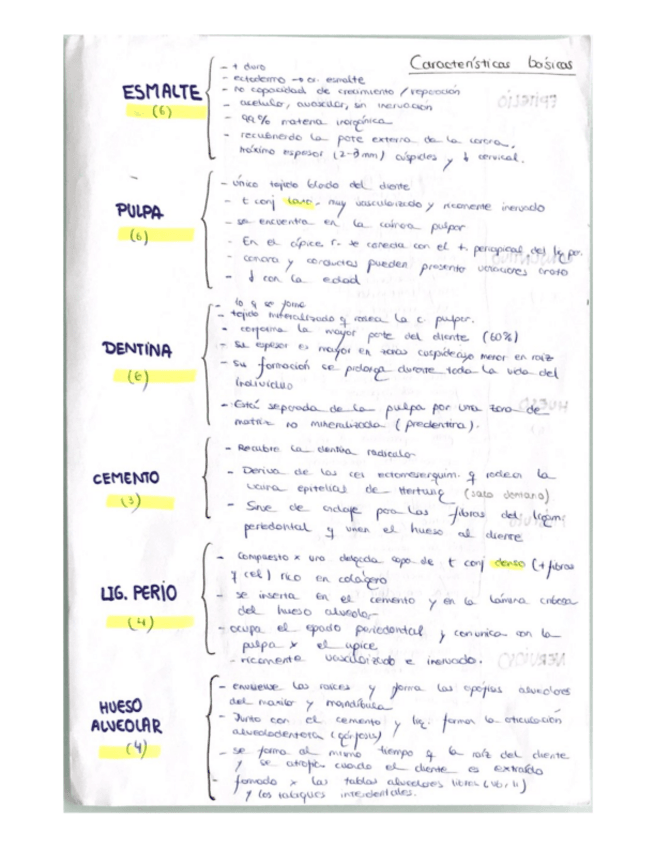 Características básicas
ESMALTE
(6)
- + duro
- ectodermo → ep. esmalte
- no capacidad de crecimiento / reparación
- acelular, avascular, sin inervación
- 99% materia inorgánica
- recubriendo la parte externa de la corona,
máximo espesor (2-3 mm) cúspides y ↓ cervical.
PULPA
(6)
- único tejido blando del diente
- t conj laxo, muy vascularizado y ricamente inervado
- se encuentra en la cámara pulpar
- En el ápice r. se conecta con el t. periapical del lig per.
- cámara y conductos pueden presentar variaciones
- ↓ con la edad
DENTINA
(6)
- lo q se forma
- tejido mineralizado q rodea la c. pulpar.
- conforma la mayor parte del diente (60%)
- su espesor es mayor en zonas cuspídeas y menor en raíz
- su formación se prolonga durante toda la vida del
individuo
- Está separada de la pulpa por una zona de
matriz no mineralizada (predentina).
CEMENTO
(3)
- Recubre la dentina radicular
- Deriva de las cel ectomesenquim. q rodean la
vaina epitelial de Hertwig (saco dentario)
- Sirve de anclaje para las fibras del ligam
periodontal y unen el hueso al diente
LIG. PERIO
(4)
- Compuesto x una delgada capa de t conj denso (+ fibras
y cel) rico en colágeno
- se inserta en el cemento y en la lámina cribosa
del hueso alveolar
- ocupa el espacio periodontal y comunica con la
pulpa x el ápice
- ricamente vascularizado e inervado.
HUESO
ALVEOLAR
(4)
- envuelve las raíces y forma las apófisis alveolares
del maxilar y mandíbula
- Junto con el cemento y lig. forman la articulación
alveolodentaria (gonfosis)
- se forma al mismo tiempo q la raíz del diente
y se atrofia cuando el diente es extraído
- formado x las tablas alveolares libres
y los tabiques interdentales.